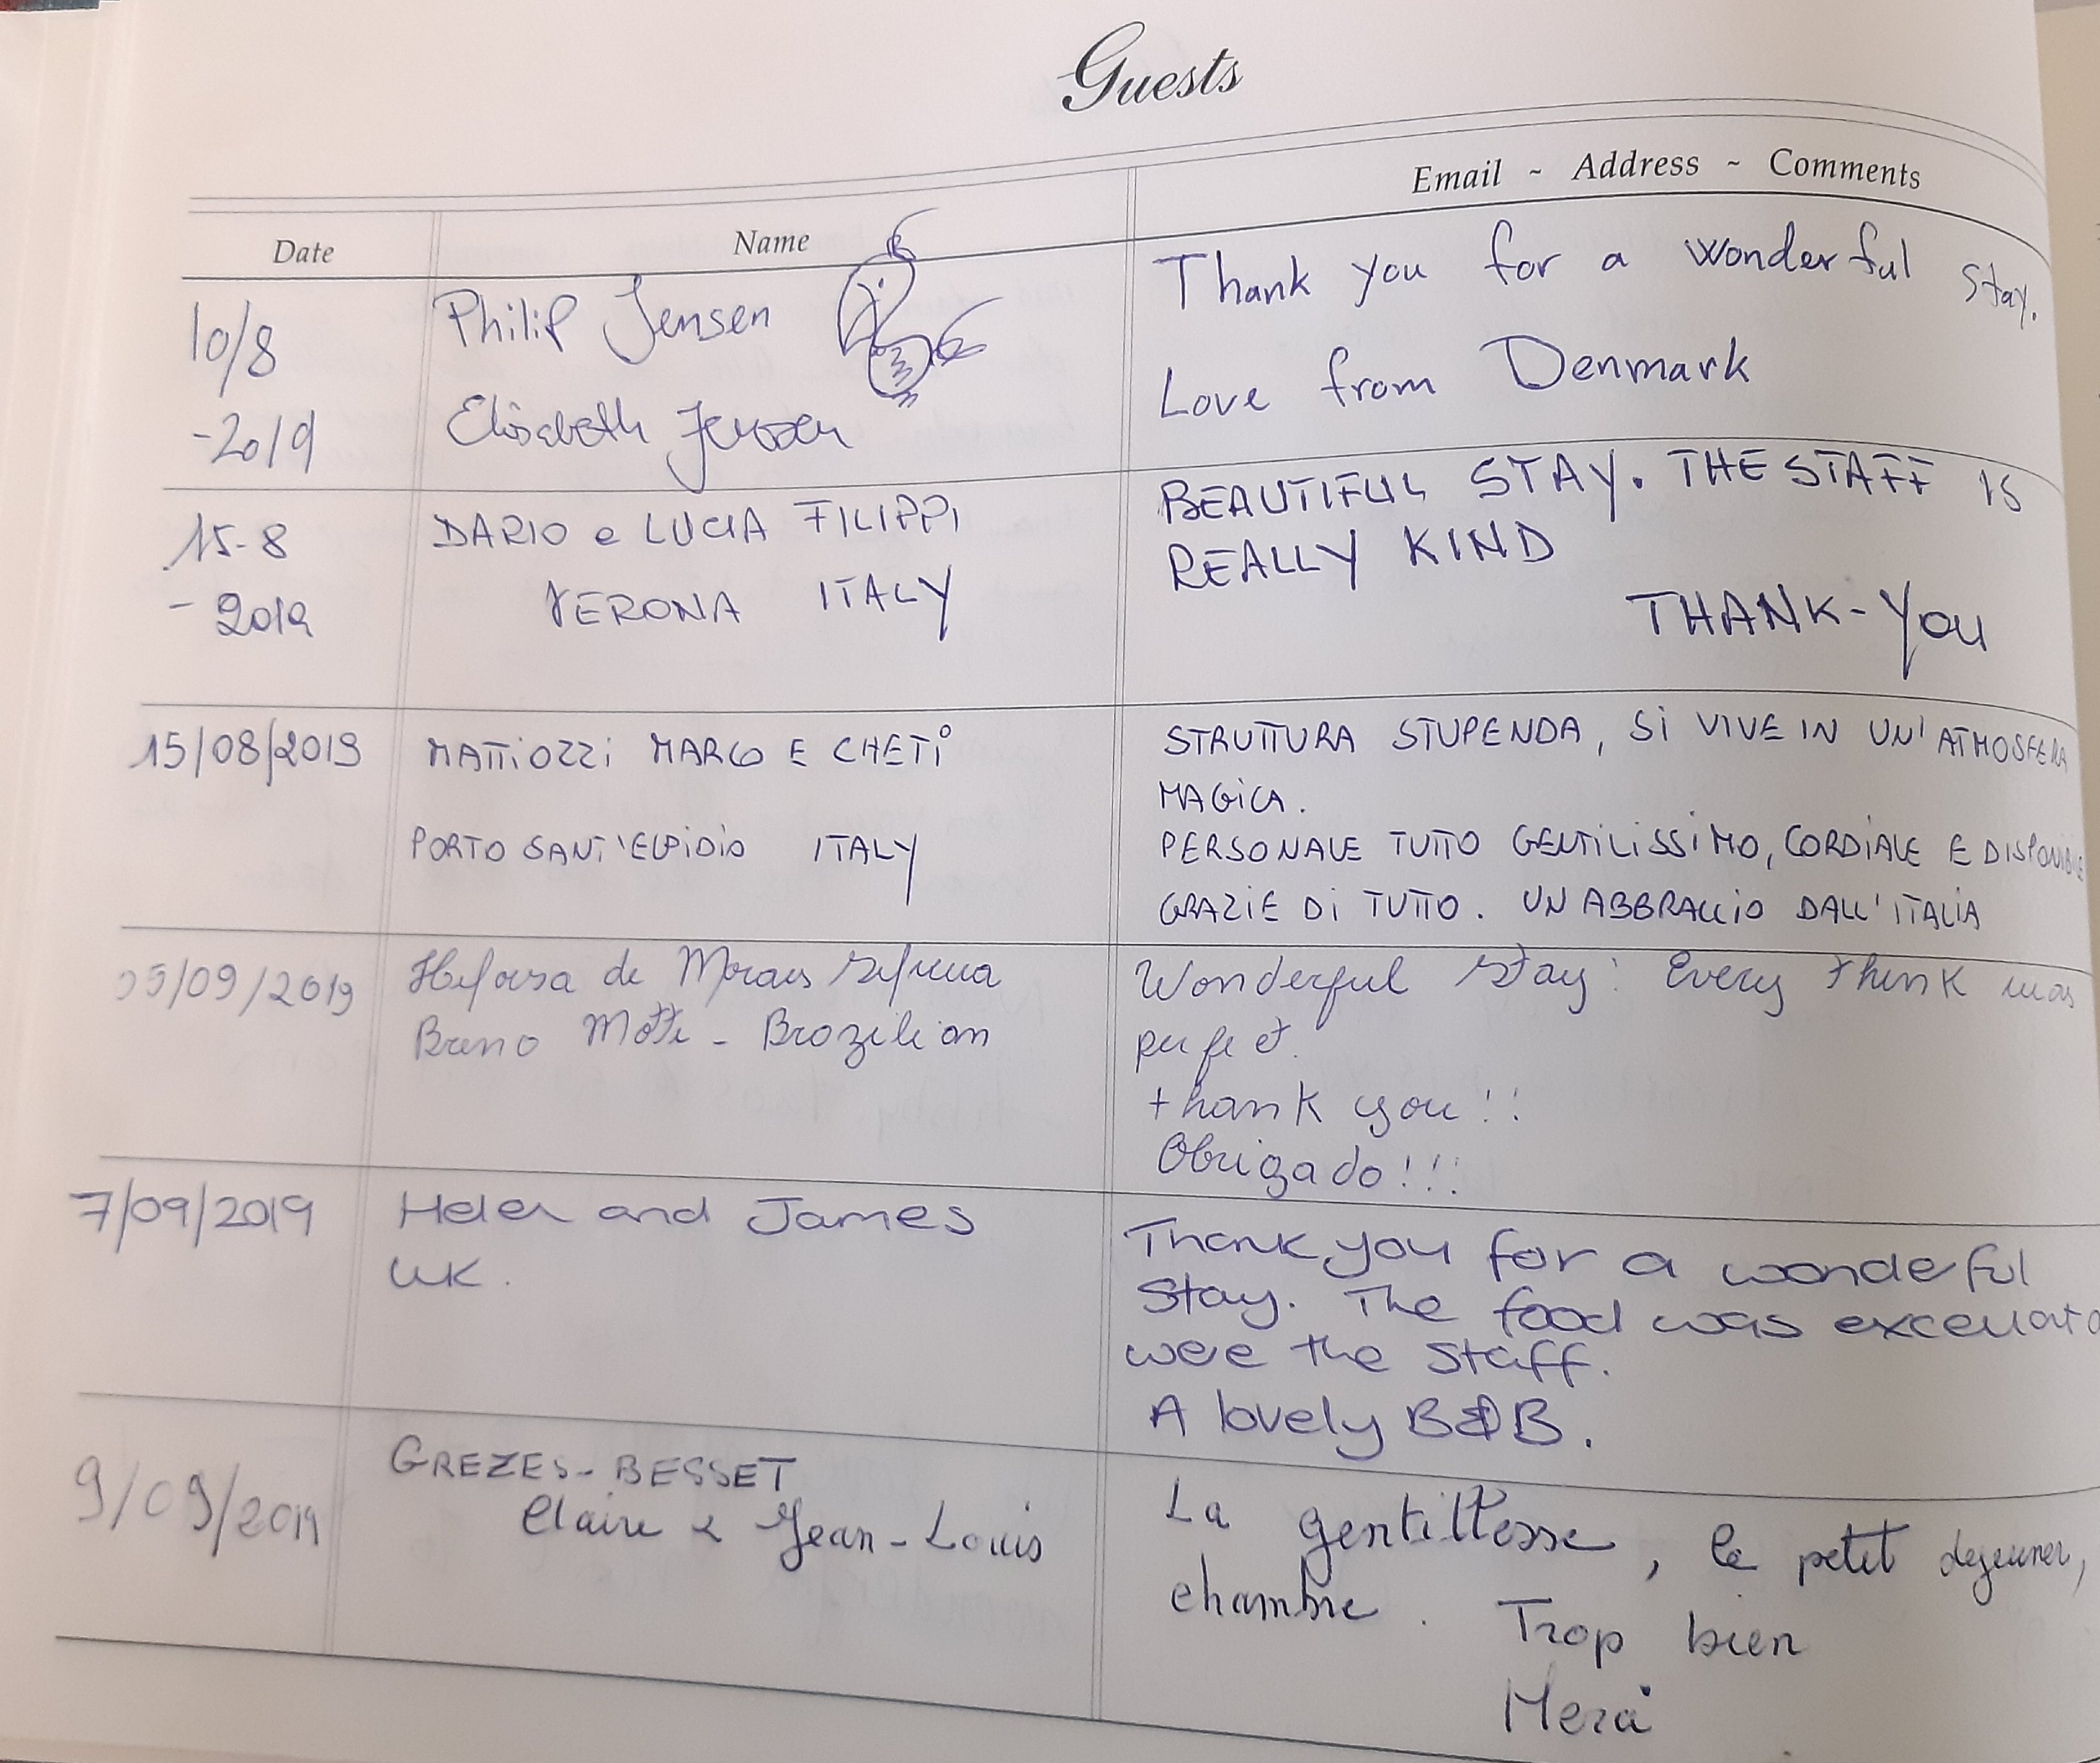 Guests
Date Name Email ~ Address ~ Comments
10/8
-2019
Philip Jensen
Elisabeth Jensen
Thank you for a wonderful stay.
Love from Denmark
15-8
- 2019
DARIO e LUCIA FILIPPI
VERONA ITALY
BEAUTIFUL STAY. THE STAFF IS
REALLY KIND
THANK-YOU
15/08/2019
MATTIOZZI MARCO E CHETI
PORTO SANT'ELPIDIO ITALY
STRUTTURA STUPENDA, SI VIVE IN UN'ATMOSFERA
MAGICA.
PERSONALE TUTTO GENTILISSIMO, CORDIALE E DISPONIBILE
GRAZIE DI TUTTO. UN ABBRACCIO DALL'ITALIA
05/09/2019
de Morais
Motta - Brazilian
Wonderful stay! Every think was
perfect.
thank you!!
Obrigado!!!
7/09/2019
Helen and James
UK.
Thank you for a wonderful
stay. The food was excellent
were the staff.
A lovely B&B.
9/09/2019
GREZES-BESSET
Claire & Jean-Louis
La gentillesse, le petit dejeuner,
chambre. Trop bien
Merci